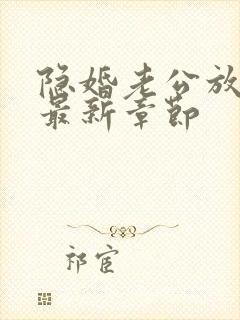 隐婚老公放
最新章节
祁宦